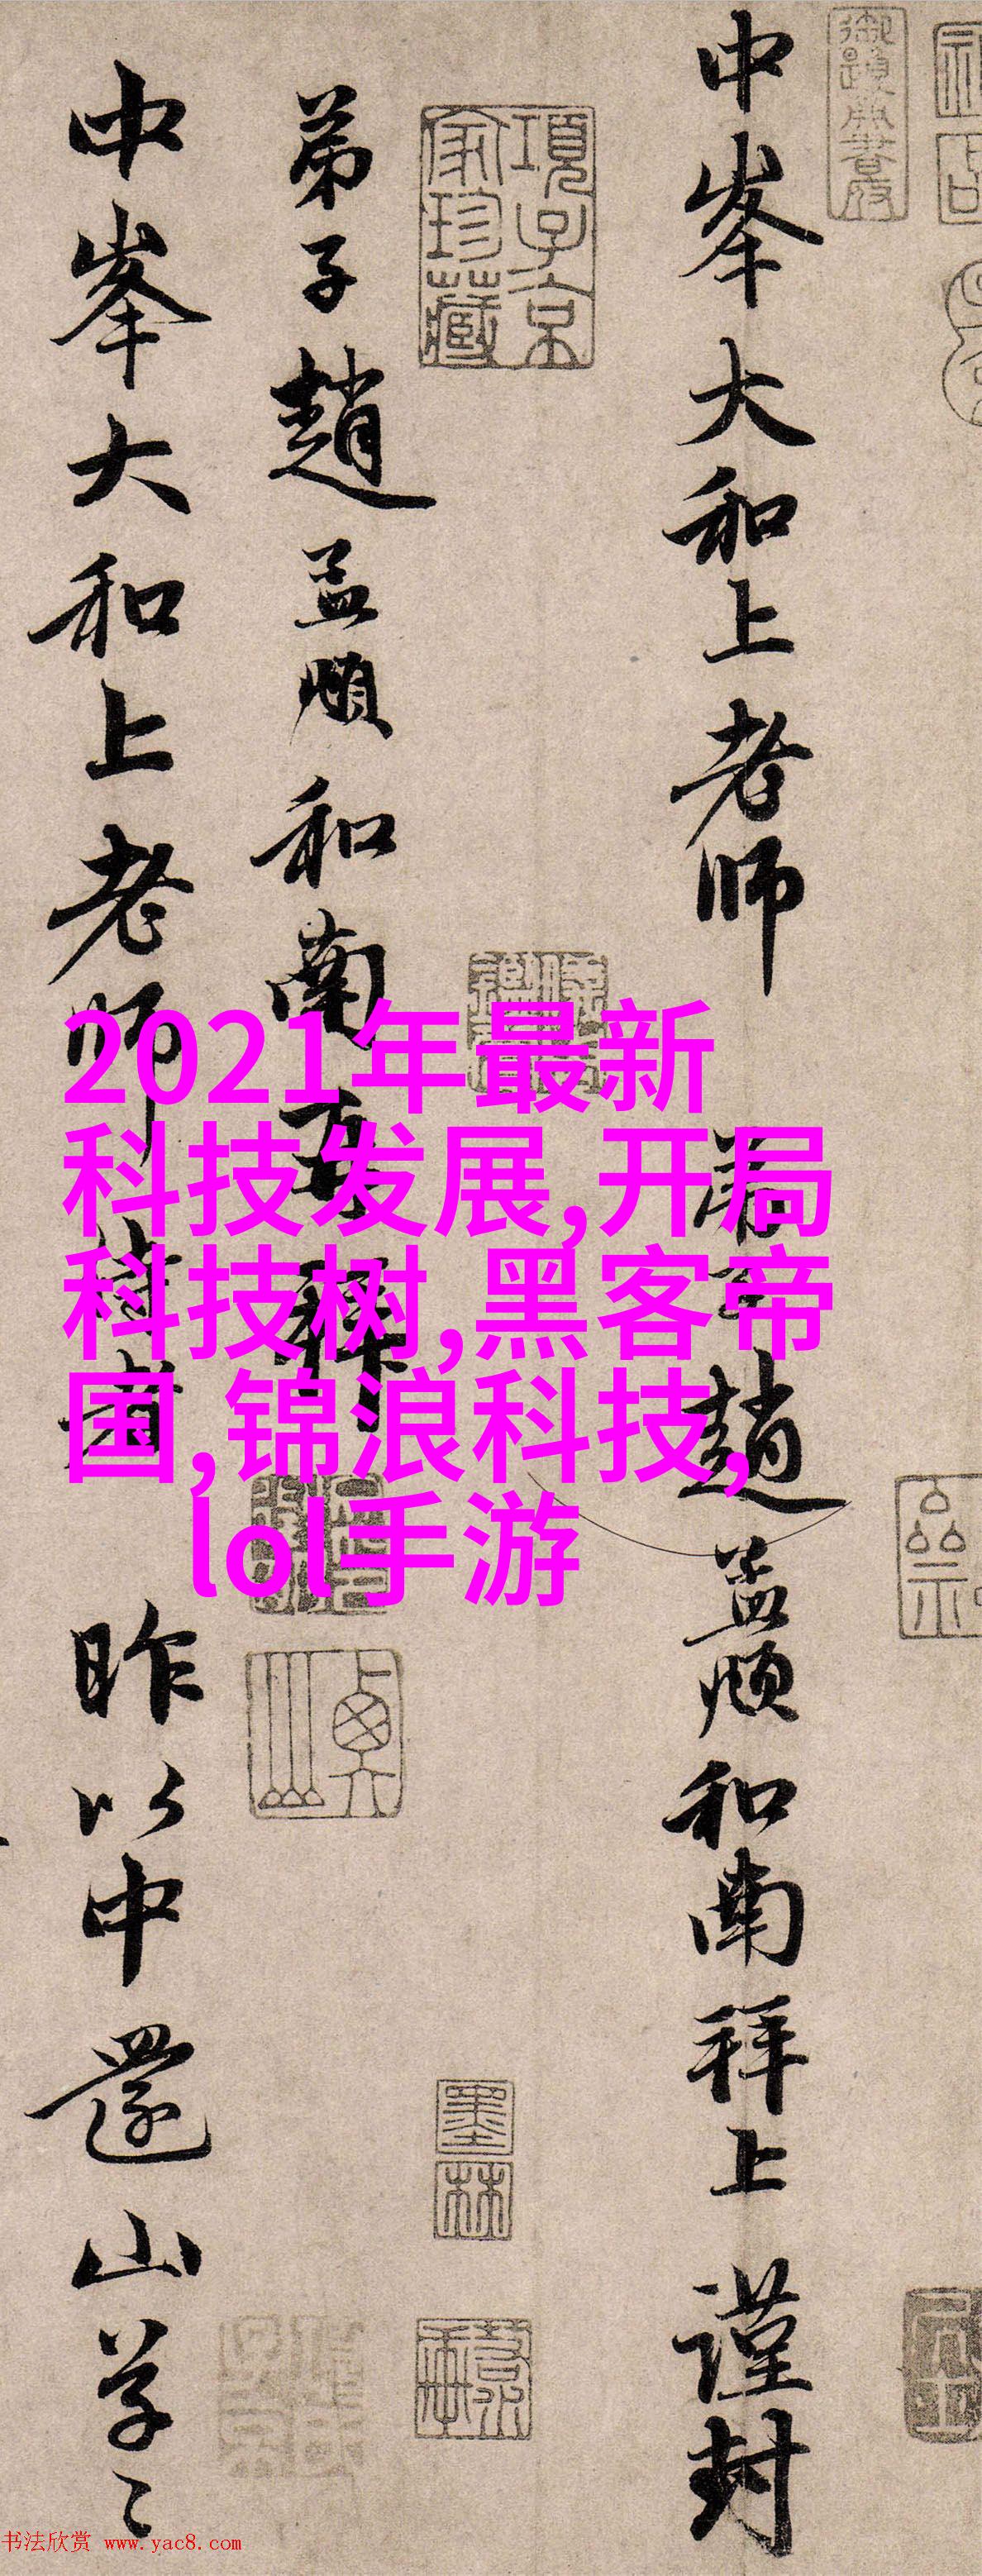 中峯大和上老师
弟子趙孟頫和南拜上謹封
項子京
家珍藏
弟子趙孟頫和南再拜
中峯大和上老师侍者
昨以中還山草〻
墨
林
2021年最新
科技发展,开局
科技树,黑客帝
国,锦浪科技,
lol手游
书法欣赏 www.yac8.com